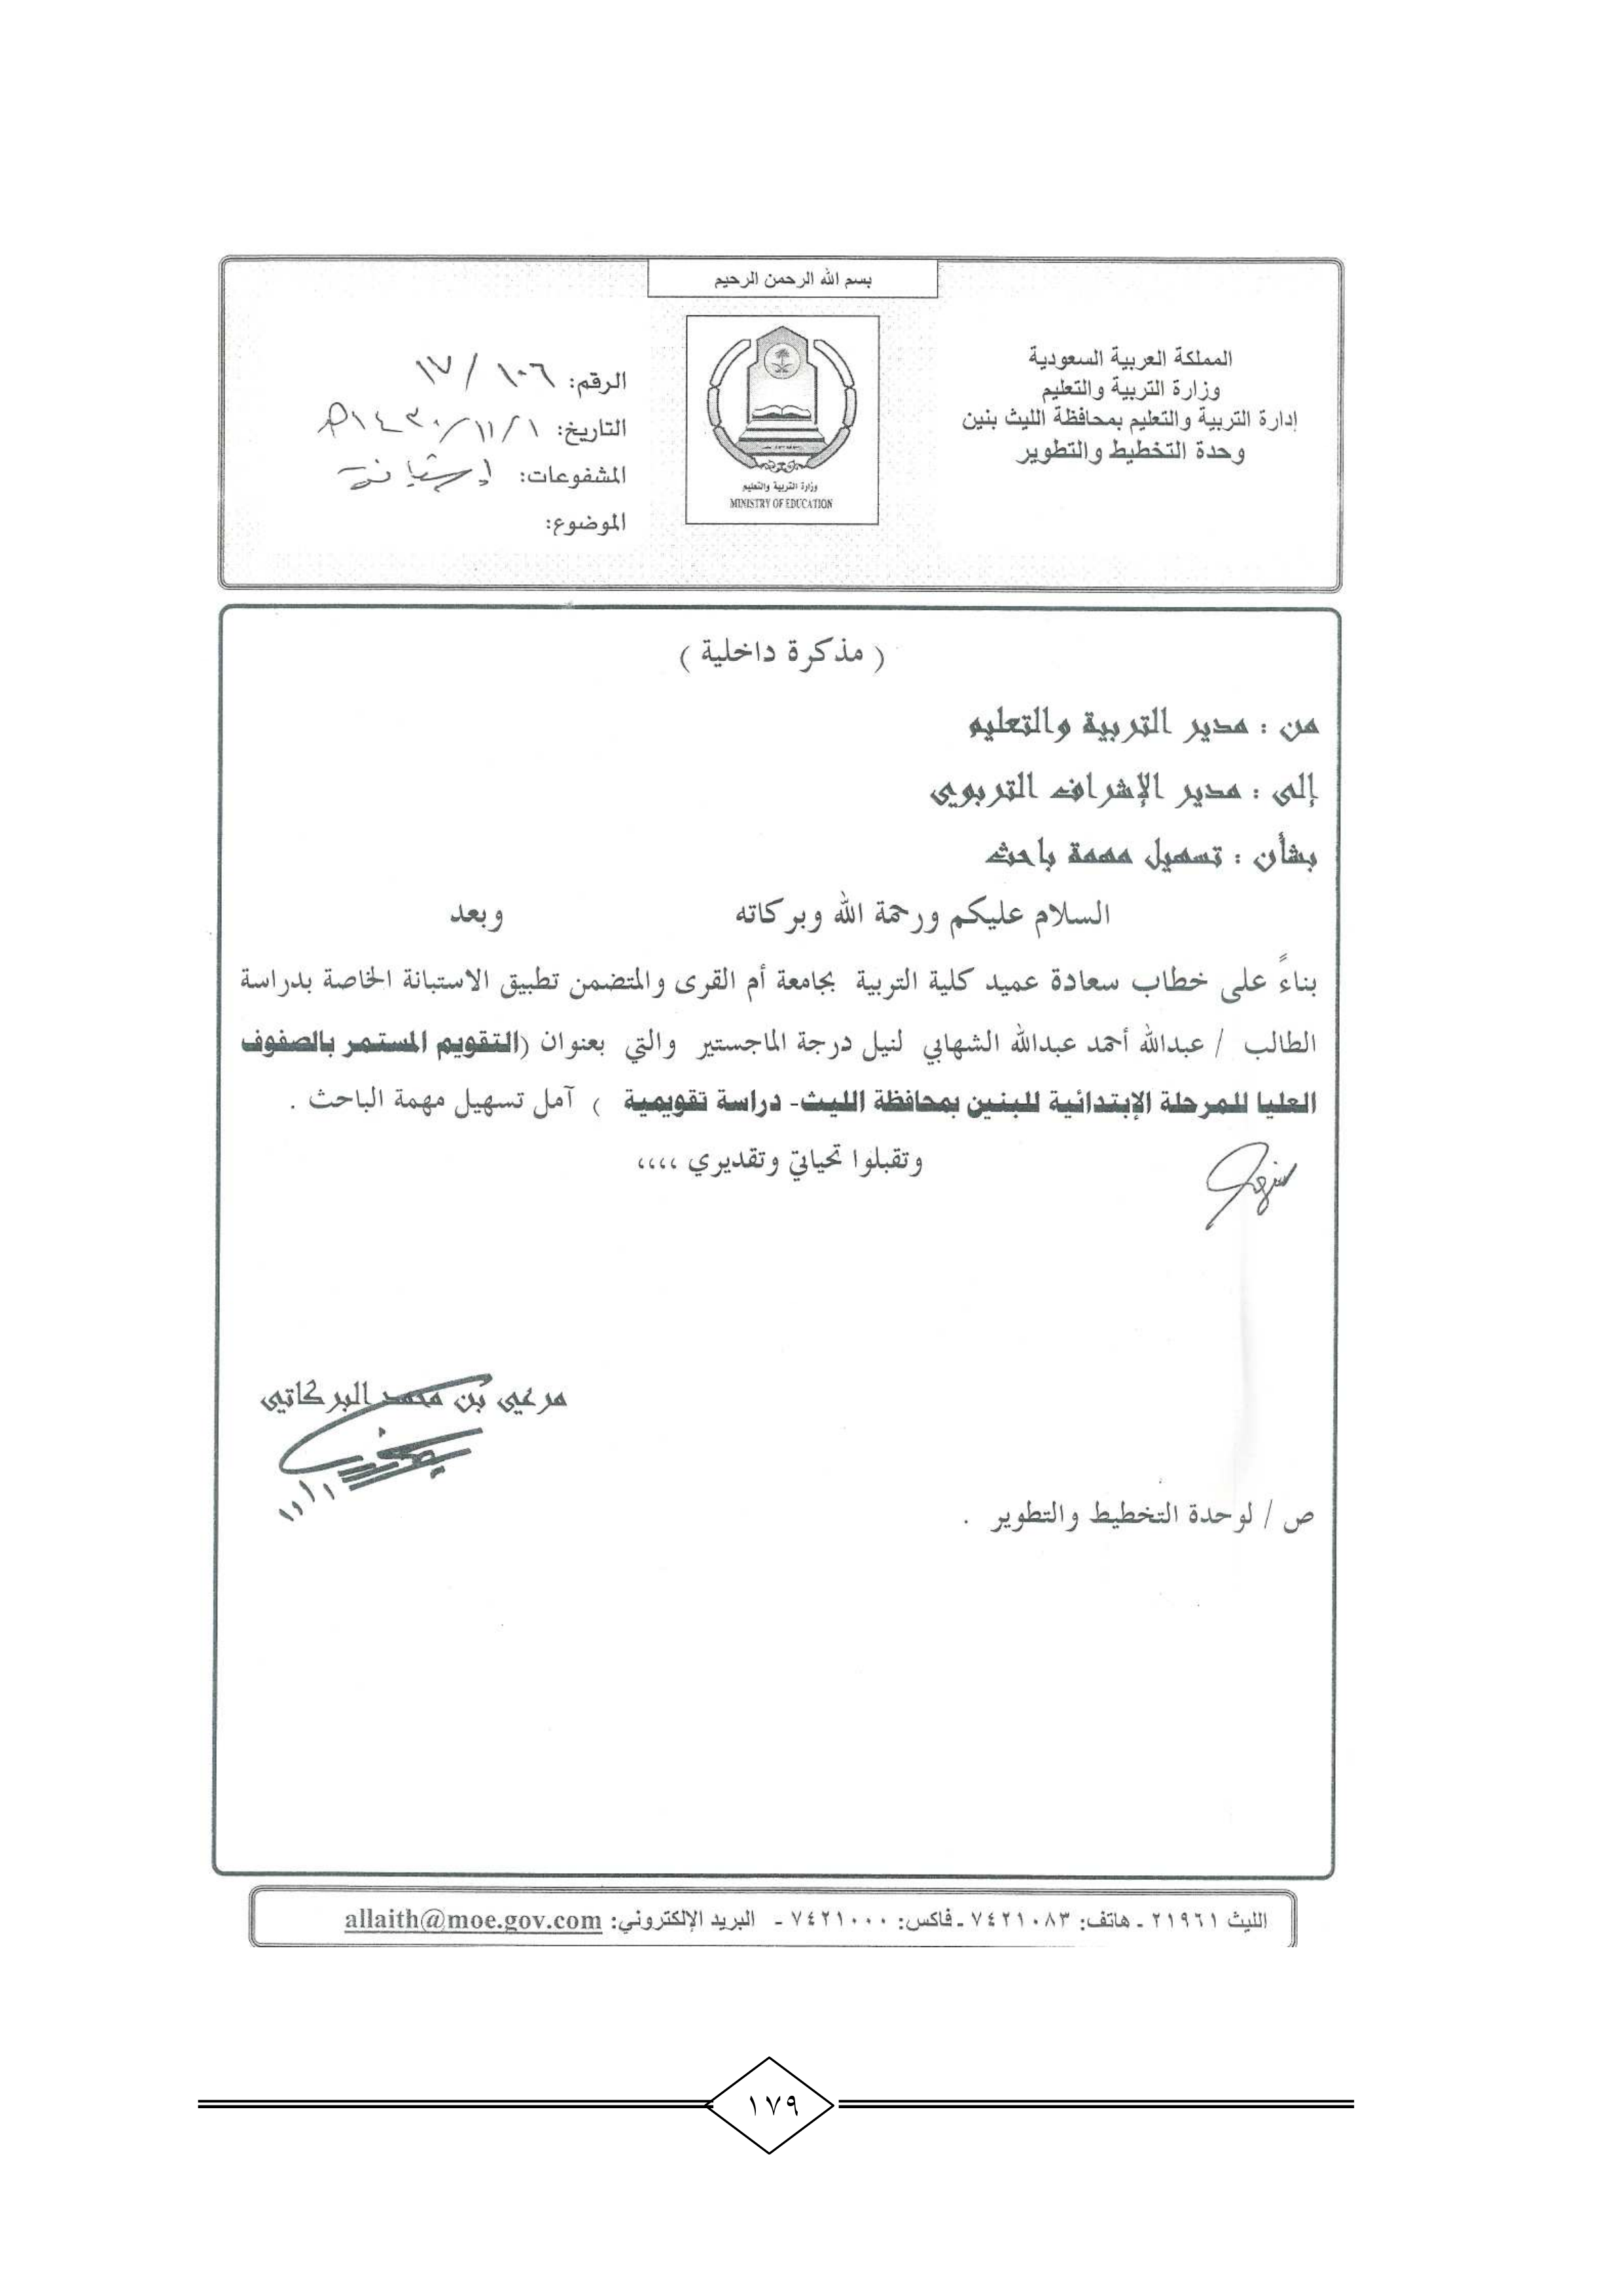 بسم الله الرحمن الرحيم
المملكة العربية السعودية
وزارة التربية والتعليم
إدارة التربية والتعليم بمحافظة الليث بنين
وحدة التخطيط والتطوير
وزارة التربية والتعليم
MINISTRY OF EDUCATION
الرقم: ١٠٦ / ١٧
التاريخ: ١ / ١١ / ١٤٣٠هـ
المشفوعات: إستبانة
الموضوع:
( مذكرة داخلية )
من : مدير التربية والتعليم
إلى : مدير الإشراف التربوي
بشأن : تسهيل مهمة باحث
السلام عليكم ورحمة الله وبركاته وبعد
بناءً على خطاب سعادة عميد كلية التربية بجامعة أم القرى والمتضمن تطبيق الاستبانة الخاصة بدراسة
الطالب / عبدالله أحمد عبدالله الشهابي لنيل درجة الماجستير والتي بعنوان (التقويم المستمر بالصفوف
العليا للمرحلة الإبتدائية للبنين بمحافظة الليث- دراسة تقويمية ) آمل تسهيل مهمة الباحث .
وتقبلوا تحياتي وتقديري ،،،،
مرعي بن محمد البركاتي
١١/١
ص / لوحدة التخطيط والتطوير .
الليث ٢١٩٦١ ـ هاتف: ٧٤٢١٠٨٣ ـ فاكس: ٧٤٢١٠٠٠ ـ البريد الإلكتروني: allaith@moe.gov.com
١٧٩